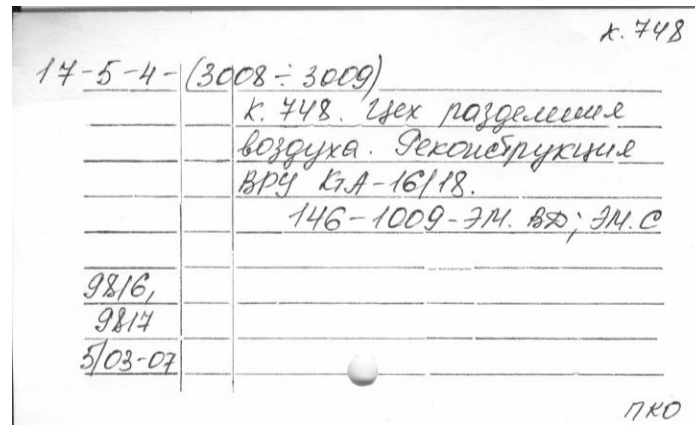 к. 748
17-5-4-(3008÷3009)
к. 748. Цех разделения
воздуха. Реконструкция
ВРУ КтА-16/18.
146-1009-ЭМ. ВД; ЭМ. С
9816,
9817
5/03-07
ПКО